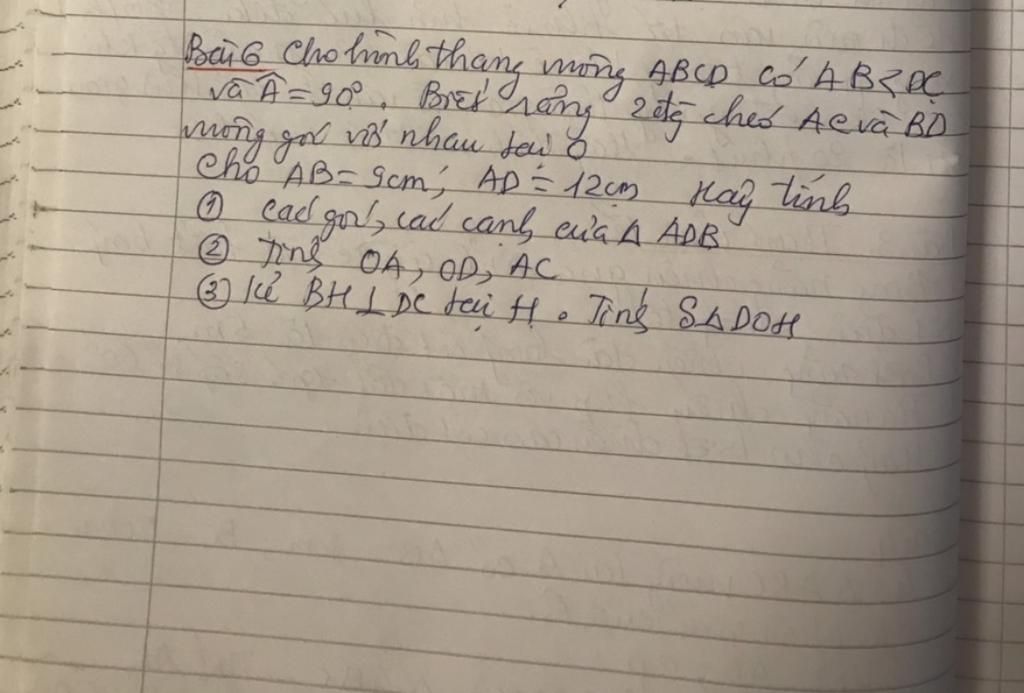 Bài 6 Cho hình thang vuông ABCD có AB < DC
và Â = 90°. Biết rằng 2 đg chéo AC và BD
vuông góc với nhau tại O
Cho AB = 9cm; AD = 12cm Hãy tính
① các góc, các cạnh của Δ ADB
② Tính OA, OD, AC
③ Kẻ BH ⊥ DC tại H. Tính SΔDOH